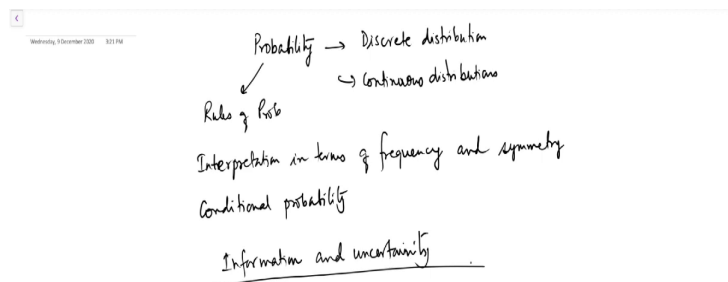 Wednesday, 9 December 2020 9:21 PM
Probability → Discrete distribution
↳ Continuous distributions
Rules of Prob
Interpretation in terms of frequency and symmetry
Conditional probability
Information and uncertainity